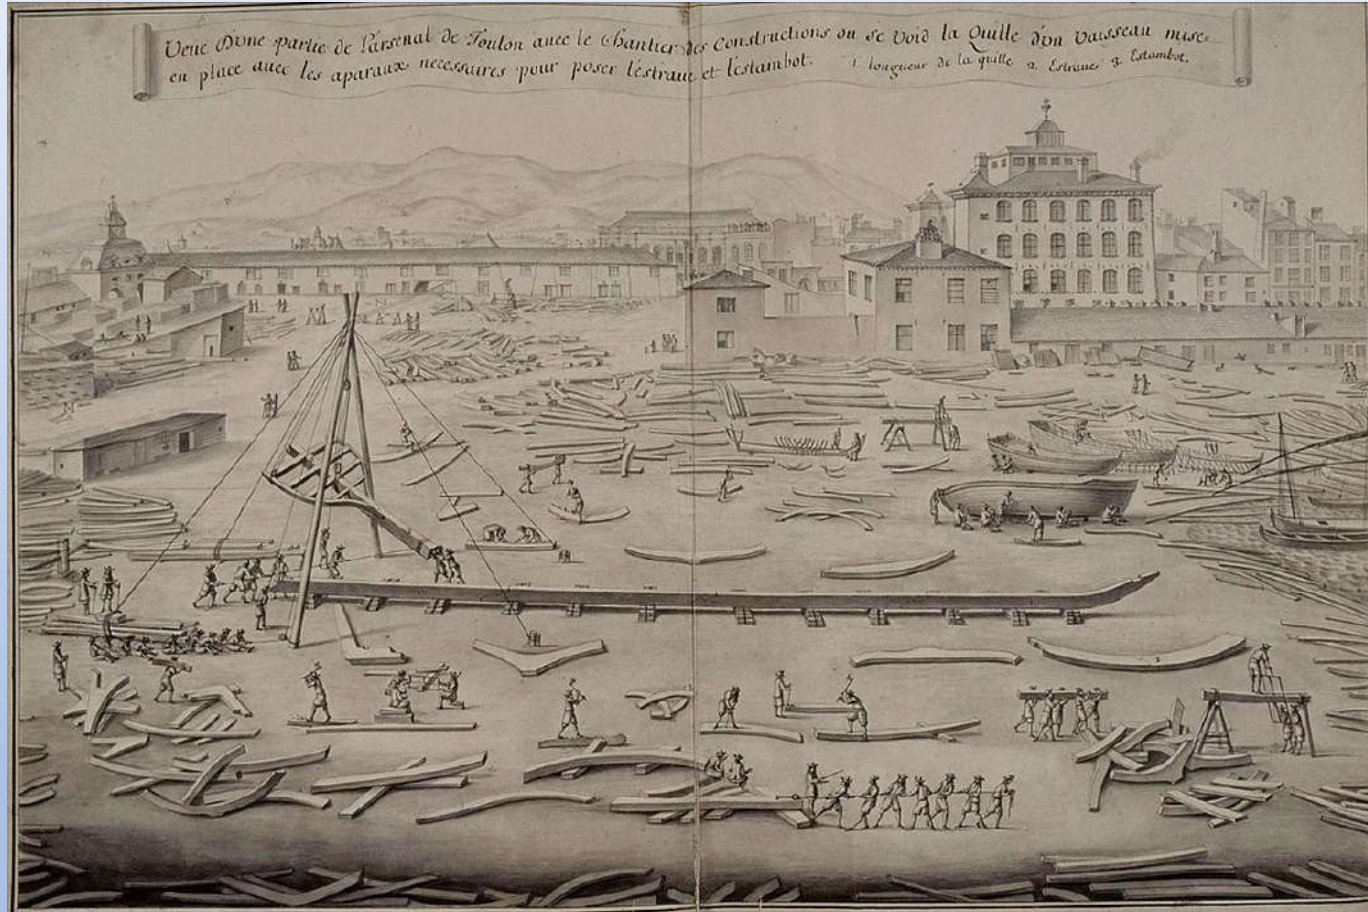 Veue D'une partie de l'arsenal de Toulon avec le Chantier des Constructions ou se void la Quille d'un vaisseau mise
en place avec les aparaux necessaires pour poser lestraue et lestambot. 1 longueur de la quille 2 Estraue 3 Estambot.